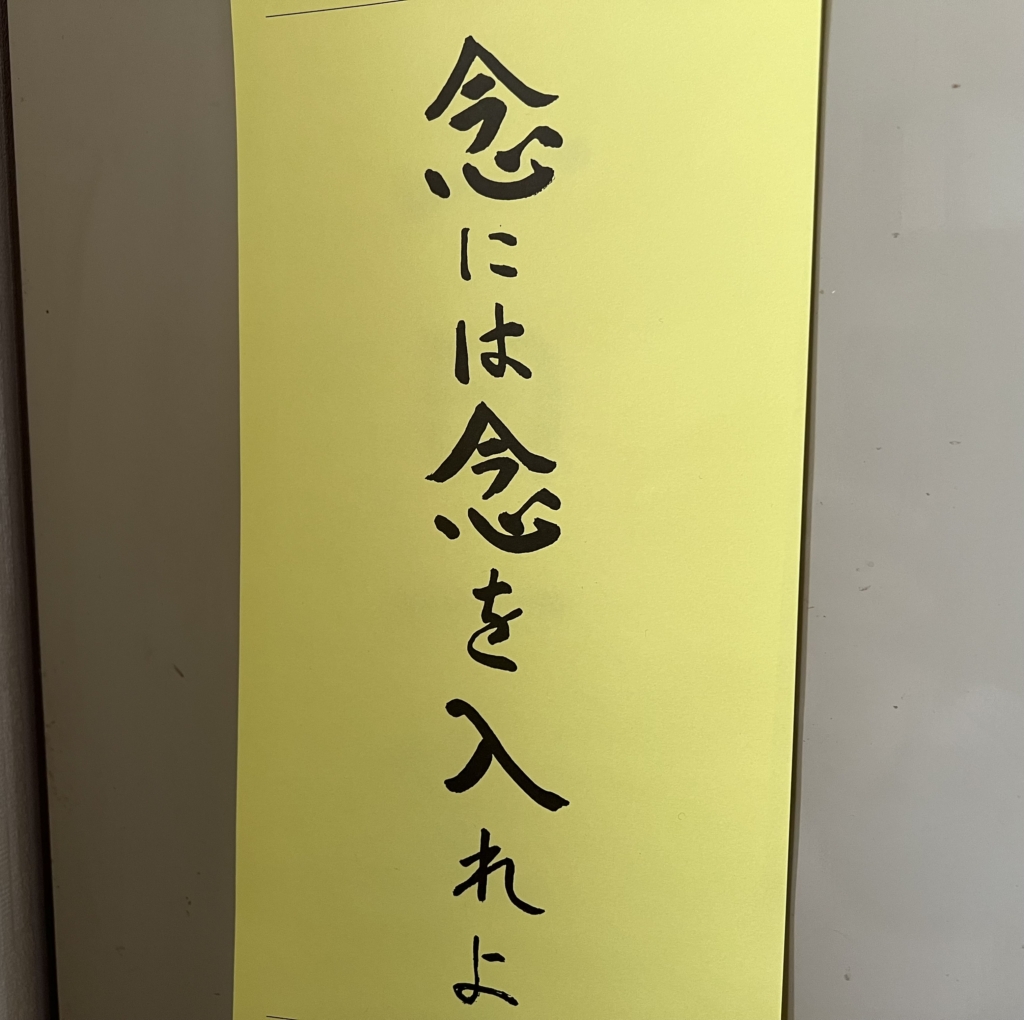 念には念を入れよ